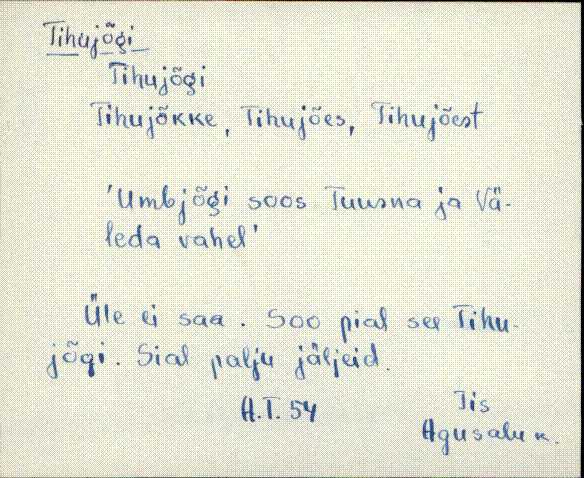 Tihujõgi
Tihujõgi
Tihujõkke, Tihujões, Tihujõest
'Umbjõgi soos Tuusna ja Vä-
leda vahel'
Üle ei saa. Soo pial see Tihu-
jõgi. Sial palju jäljeid.
A.T. 54
Iis
Agusalu k.